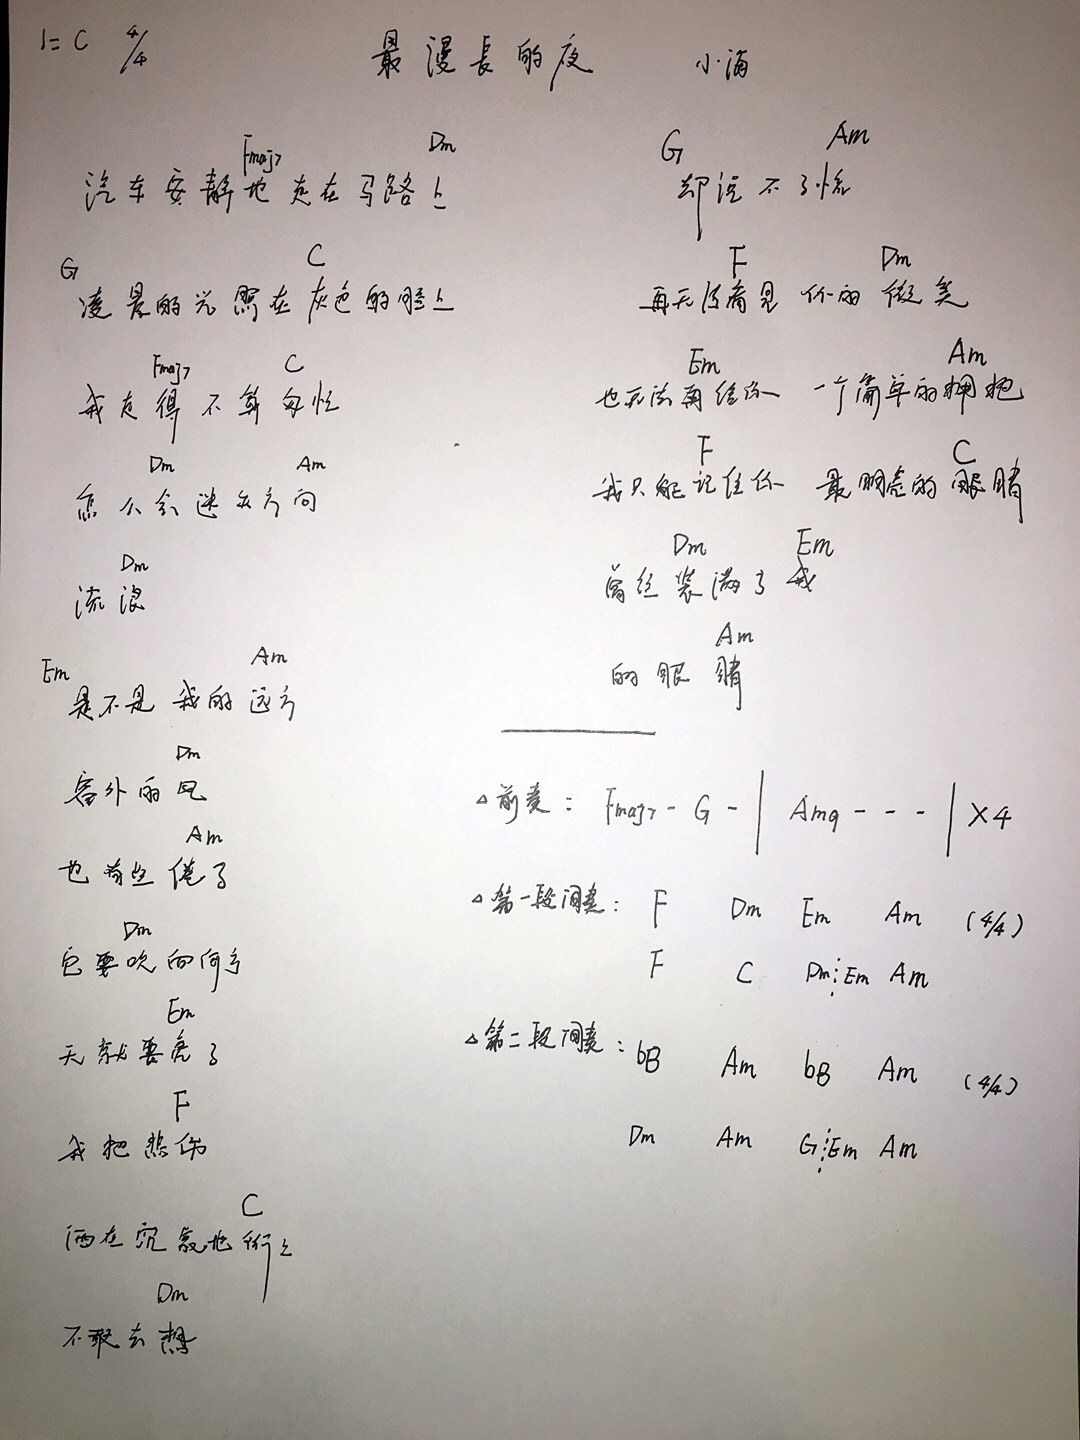 1=C 4/4
最漫長的夜 小满
Fmaj7 Dm
汽车安静地走在马路上
G C
凌晨的光照在灰色的脸上
Fmaj7 C
我走得不算匆忙
Dm Am
怎么会迷失方向
Dm
流浪
Em Am
是不是我的远方
Dm
窗外的风
Am
也有些倦了
Dm
它要吹向何方
Em
天就要亮了
F
我把悲伤
C
洒在沉寂地街上
Dm
不敢去想
G Am
却说不了慌
F Dm
再无法看见 你的微笑
Em Am
也无法再给你 一个简单的拥抱
F C
我只能记住你 最明亮的眼睛
Dm Em
曾经装满了我
Am
的眼睛
△前奏: Fmaj7 - G - | Am9 - - - | ×4
△第一段间奏: F Dm Em Am (4/4)
F C Dm Em Am
△第二段间奏: bB Am bB Am (4/4)
Dm Am G Em Am